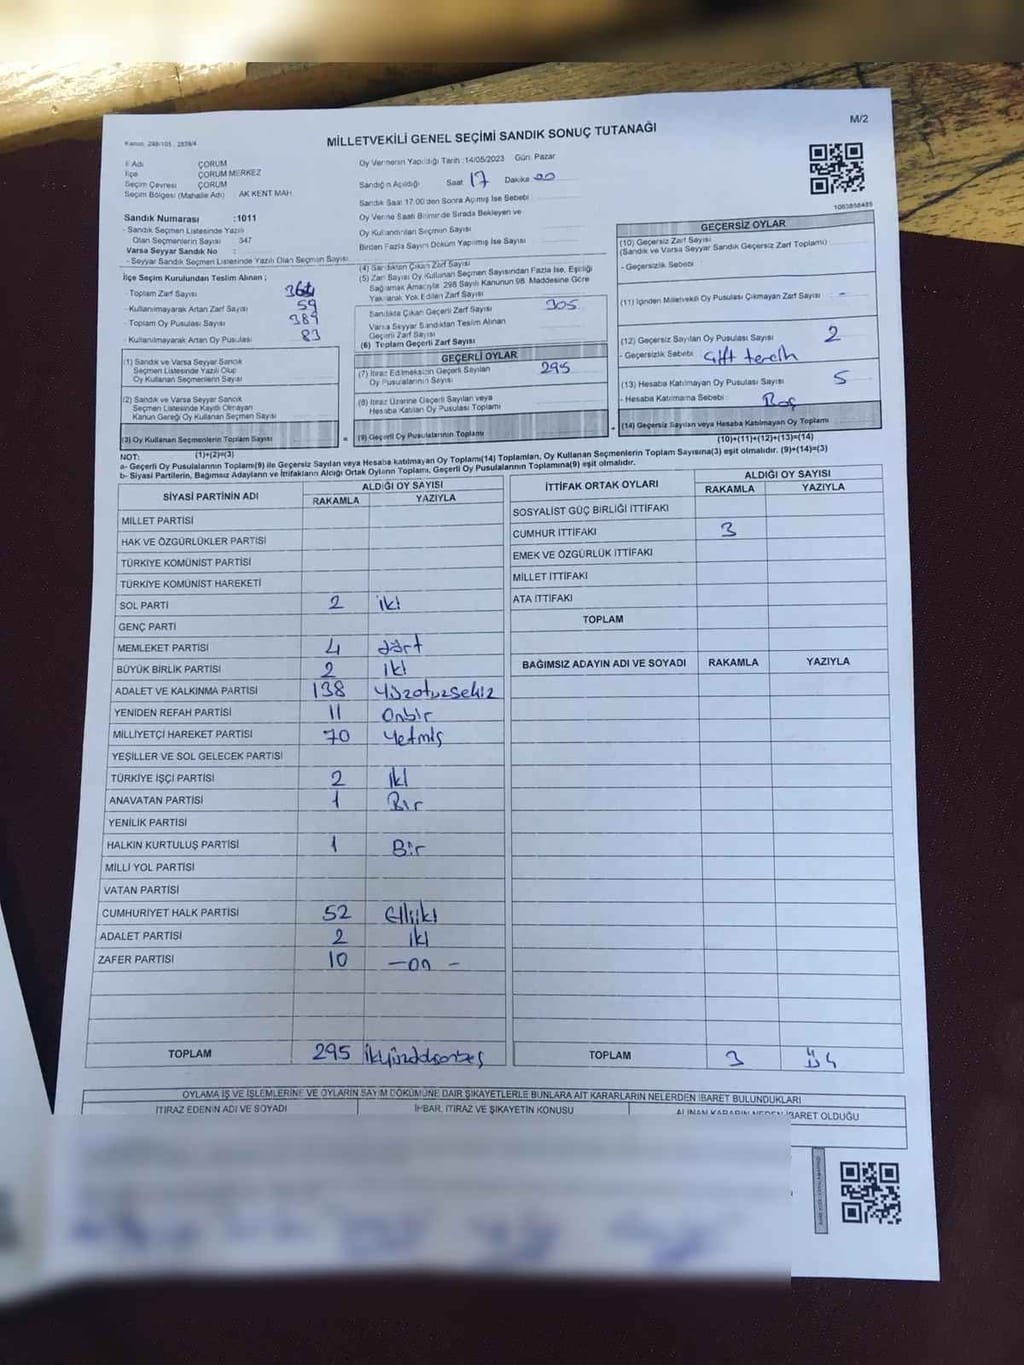 M/2
Kanun: 298/105 , 2839/4
MİLLETVEKİLİ GENEL SEÇİMİ SANDIK SONUÇ TUTANAĞI
İl Adı ÇORUM
İlçe ÇORUM MERKEZ
Seçim Çevresi ÇORUM
Seçim Bölgesi (Mahalle Adı) AK KENT MAH
Sandık Numarası :1011
- Sandık Seçmen Listesinde Yazılı
Olan Seçmenlerin Sayısı 347
Varsa Seyyar Sandık No :
- Seyyar Sandık Seçmen Listesinde Yazılı Olan Seçmen Sayısı
İlçe Seçim Kurulundan Teslim Alınan ;
- Toplam Zarf Sayısı
- Kullanılmayarak Artan Zarf Sayısı 59
- Toplam Oy Pusulası Sayısı 389
- Kullanılmayarak Artan Oy Pusulası 83
(1) Sandık ve Varsa Seyyar Sandık
Seçmen Listesinde Yazılı Olup
Oy Kullanan Seçmenlerin Sayısı
(2) Sandık ve Varsa Seyyar Sandık
Seçmen Listesinde Kayıtlı Olmayan
Kanun Gereği Oy Kullanan Seçmen Sayısı
(3) Oy Kullanan Seçmenlerin Toplam Sayısı
(1)+(2)=(3)
Oy Vermenin Yapıldığı Tarih :14/05/2023 Gün: Pazar
Sandığın Açıldığı Saat 17 Dakika 00
Sandık Saat 17.00'den Sonra Açılmış İse Sebebi
Oy Verme Saati Bitiminde Sırada Bekleyen ve
Oy Kullandırılan Seçmen Sayısı
Birden Fazla Sayım Döküm Yapılmış İse Sayısı
(4) Sandıktan Çıkan Zarf Sayısı
(5) Zarf Sayısı Oy Kullanan Seçmen Sayısından Fazla İse, Eşitliği
Sağlamak Amacıyla 298 Sayılı Kanunun 98. Maddesine Göre
Yakılarak Yok Edilen Zarf Sayısı
Sandıkta Çıkan Geçerli Zarf Sayısı 305
Varsa Seyyar Sandıktan Teslim Alınan
Geçerli Zarf Sayısı
(6) Toplam Geçerli Zarf Sayısı
GEÇERLİ OYLAR
(7) İtiraz Edilmeksizin Geçerli Sayılan
Oy Pusulalarının Sayısı 295
(8) İtiraz Üzerine Geçerli Sayılan veya
Hesaba Katılan Oy Pusulası Toplamı
(9) Geçerli Oy Pusulalarının Toplamı
1083858485
GEÇERSİZ OYLAR
(10) Geçersiz Zarf Sayısı
(Sandık ve Varsa Seyyar Sandık Geçersiz Zarf Toplamı)
- Geçersizlik Sebebi
(11) İçinden Milletvekili Oy Pusulası Çıkmayan Zarf Sayısı -
(12) Geçersiz Sayılan Oy Pusulası Sayısı 2
- Geçersizlik Sebebi çift tercih
(13) Hesaba Katılmayan Oy Pusulası Sayısı 5
- Hesaba Katılmama Sebebi : Boş
(14) Geçersiz Sayılan veya Hesaba Katılmayan Oy Toplamı
(10)+(11)+(12)+(13)=(14)
NOT:
a- Geçerli Oy Pusulalarının Toplamı(9) ile Geçersiz Sayılan veya Hesaba katılmayan Oy Toplamı(14) Toplamları, Oy Kullanan Seçmenlerin Toplam Sayısına(3) eşit olmalıdır. (9)+(14)=(3)
b- Siyasi Partilerin, Bağımsız Adayların ve İttifakların Aldığı Ortak Oyların Toplamı, Geçerli Oy Pusulalarının Toplamına(9) eşit olmalıdır.
SİYASİ PARTİNİN ADI ALDIĞI OY SAYISI
RAKAMLA YAZIYLA
MİLLET PARTİSİ
HAK VE ÖZGÜRLÜKLER PARTİSİ
TÜRKİYE KOMÜNİST PARTİSİ
TÜRKİYE KOMÜNİST HAREKETİ
SOL PARTİ 2 iki
GENÇ PARTİ
MEMLEKET PARTİSİ 4 dört
BÜYÜK BİRLİK PARTİSİ 2 iki
ADALET VE KALKINMA PARTİSİ 138 Yüzotuzsekiz
YENİDEN REFAH PARTİSİ 11 Onbir
MİLLİYETÇİ HAREKET PARTİSİ 70 Yetmiş
YEŞİLLER VE SOL GELECEK PARTİSİ
TÜRKİYE İŞÇİ PARTİSİ 2 iki
ANAVATAN PARTİSİ 1 Bir
YENİLİK PARTİSİ
HALKIN KURTULUŞ PARTİSİ 1 Bir
MİLLİ YOL PARTİSİ
VATAN PARTİSİ
CUMHURİYET HALK PARTİSİ 52 Elliiki
ADALET PARTİSİ 2 iki
ZAFER PARTİSİ 10 -on-
TOPLAM 295 ikiyüzdoksanbeş
İTTİFAK ORTAK OYLARI ALDIĞI OY SAYISI
RAKAMLA YAZIYLA
SOSYALİST GÜÇ BİRLİĞİ İTTİFAKI
CUMHUR İTTİFAKI 3
EMEK VE ÖZGÜRLÜK İTTİFAKI
MİLLET İTTİFAKI
ATA İTTİFAKI
TOPLAM
BAĞIMSIZ ADAYIN ADI VE SOYADI RAKAMLA YAZIYLA
TOPLAM 3 üç
OYLAMA İŞ VE İŞLEMLERİNE VE OYLARIN SAYIM DÖKÜMÜNE DAİR ŞİKAYETLERLE BUNLARA AİT KARARLARIN NELERDEN İBARET BULUNDUKLARI
İTİRAZ EDENİN ADI VE SOYADI İHBAR, İTİRAZ VE ŞİKAYETİN KONUSU ALINAN KARARIN NEDEN İBARET OLDUĞU